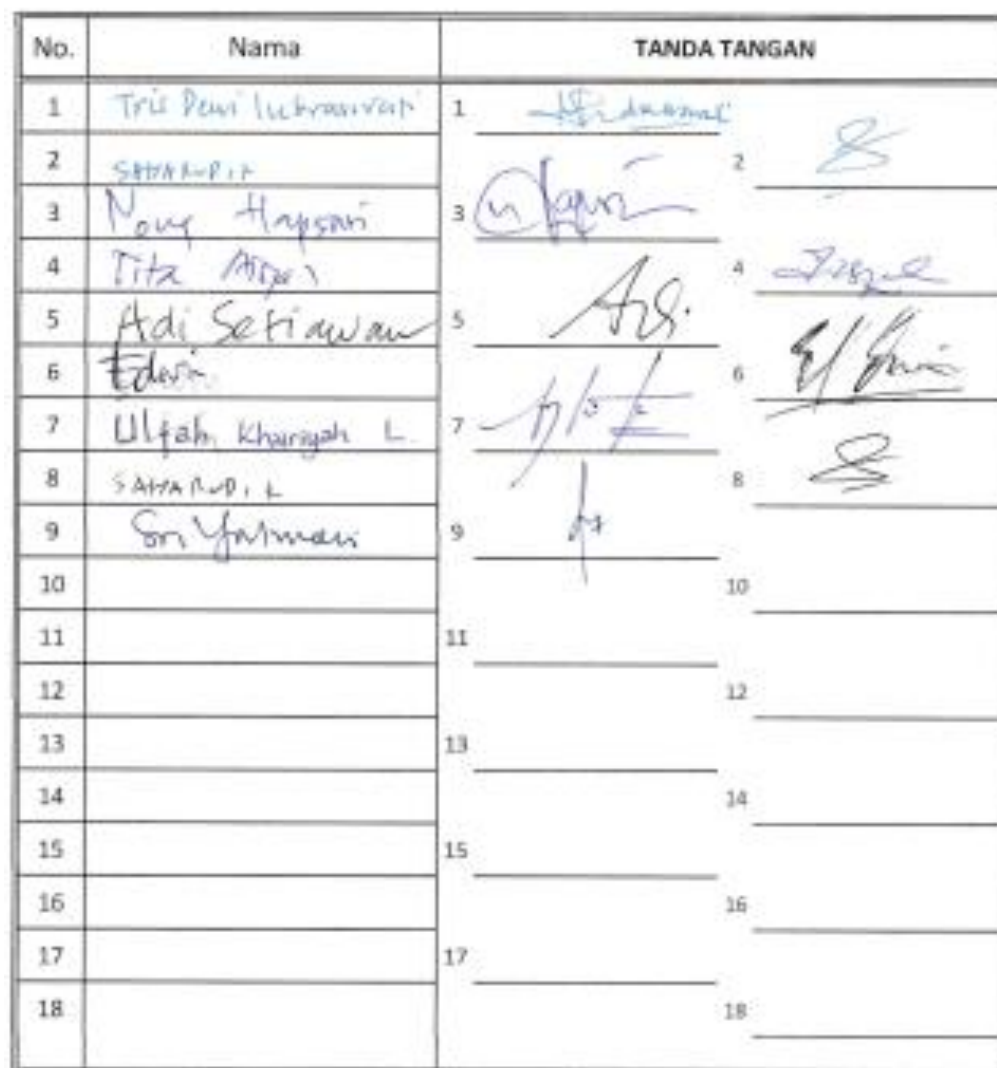 No. Nama TANDA TANGAN
1 Tris Dewi Indraswati 1
2 SAHARUDIN 2
3 Hapsari 3
4 Tita 4
5 Adi Setiawan 5 Adi
6 Edwin 6
7 Ulfah Khairiyah L. 7
8 SAHARUDIN 8
9 Sri Yatman 9
10 10
11 11
12 12
13 13
14 14
15 15
16 16
17 17
18 18